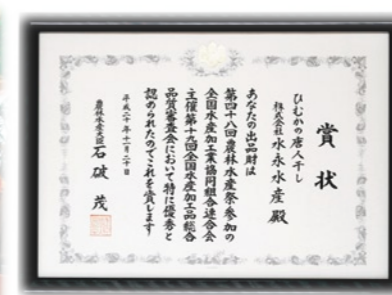 賞状
ひむかの唐人干し
株式会社 水永水産 殿
あなたの出品財は
第四十八回農林水産祭参加の
全国水産加工業協同組合連合会
主催第十九回全国水産加工品総合
品質審査会において特に優秀と
認められたのでこれを賞します
平成二十年十一月二十日
農林水産大臣 石破 茂